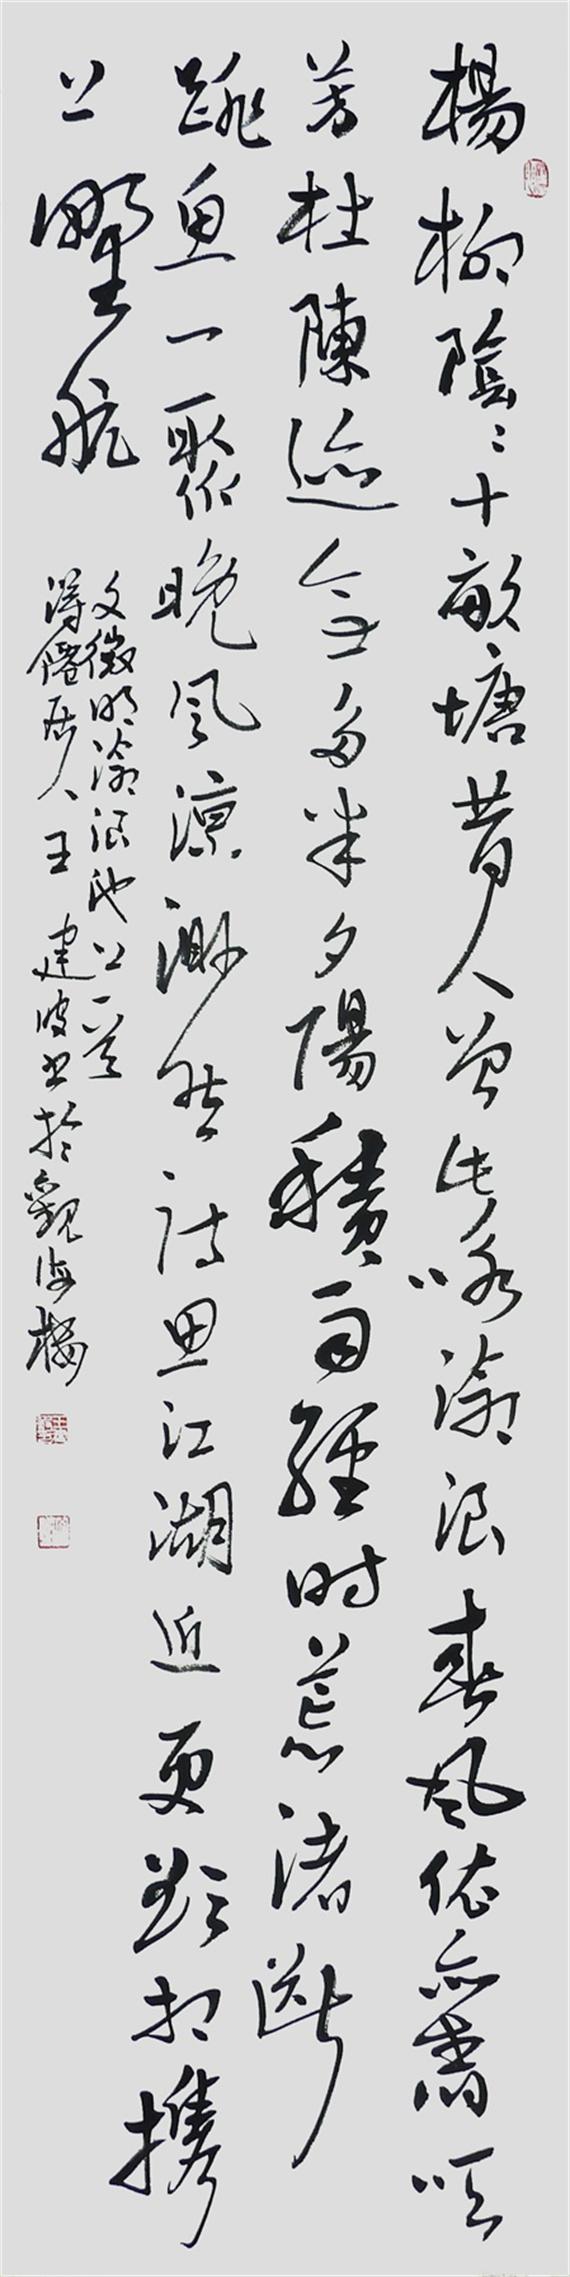 楊柳陰〻十畝塘昔人曾此咏滄浪春風依舊吹
芳杜陳迹無多半夕陽積雨經時荒渚斷
跳魚一聚晚風涼渺然詩思江湖近更欲相攜
上野航
文徵明滄浪池上一首
僊居人王建波書於觀海樓